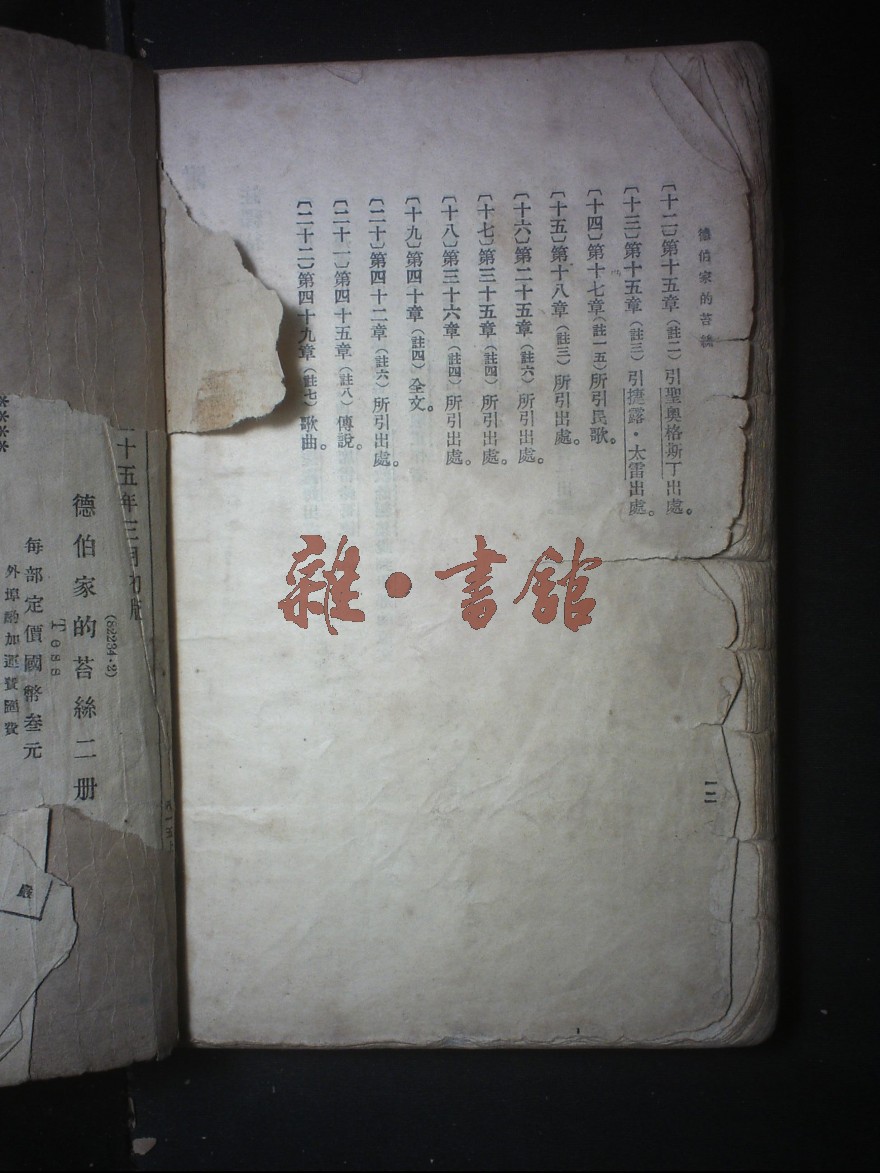 德伯家的苔絲
〔十二〕第十五章（註二）引聖奧格斯丁出處。
〔十三〕第十五章（註三）引捷露·太雷出處。
〔十四〕第十七章（註一五）所引民歌。
〔十五〕第十八章（註三）所引出處。
〔十六〕第二十五章（註六）所引出處。
〔十七〕第三十五章（註四）所引出處。
〔十八〕第三十六章（註四）所引出處。
〔十九〕第四十章（註四）全文。
〔二十〕第四十二章（註六）所引出處。
〔二十一〕第四十五章（註八）傳說。
〔二十二〕第四十九章（註七）歌曲。
一二
雜·書館
十五年三月初版
(62234·2)
德伯家的苔絲二册
Tess
每部定價國幣叁元
外埠酌加運費匯費
****